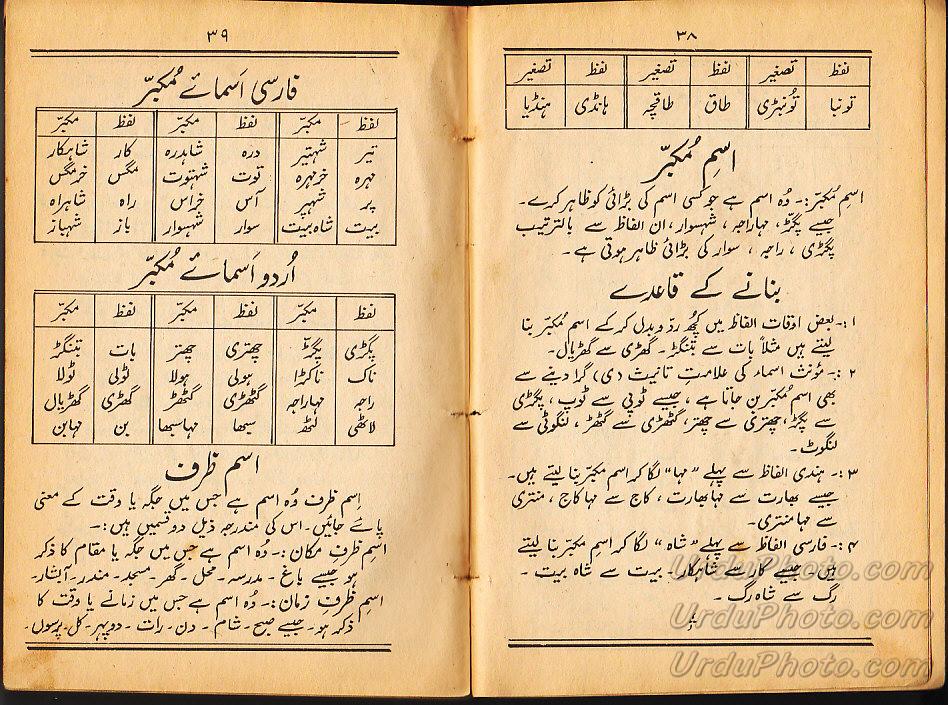 ۳۸
لفظ تصغیر لفظ تصغیر لفظ تصغیر
تونبا تُونبڑی طاق طاقچہ ہانڈی ہنڈیا
اسمِ مُکبرّ
اسمِ مُکبرّ:۔ وُہ اسم ہے جو کسی اسم کی بڑائی کو ظاہر کرے۔
جیسے پگڑّ، مہاراجہ ، شہسوار، ان الفاظ سے بالترتیب
پگڑی ، راجہ ، سوار کی بڑائی ظاہر ہوتی ہے۔
بنانے کے قاعدے
۱:۔ بعض اوقات الفاظ میں کچُھ ردّ و بدل کر کے اسم مُکبرّ بنا
لیتے ہیں مثلاً بات سے بتنگڑ۔ گھڑی سے گھڑیال۔
۲:۔ مؤنث اسماء کی علامتِ تانیث (ی) گرا دینے سے
بھی اسم مُکبرّ بن جاتا ہے ، جیسے ٹوپی سے ٹوپ ، پگڑی
سے پگڑ، چھتری سے چھتر، گٹھڑی سے گٹھڑ ، لنگوٹی سے
لنگوٹ۔
۳:۔ ہندی الفاظ سے پہلے "مہا" لگا کر اسم مکبرّ بنا لیتے ہیں۔
جیسے بھارت سے مہا بھارت ، کاج سے مہا کاج ، منتری
سے مہا منتری۔
۴:۔ فارسی الفاظ سے پہلے "شاہ" لگا کر اسمِ مکبرّ بنا لیتے
ہیں۔ جیسے کار سے شاہکار۔ بیت سے شاہ بیت ۔
رگ سے شاہ رگ ۔
۳۹
فارسی اَسمائے مُکبرّ
لفظ مکبرّ لفظ مکبرّ لفظ مکبرّ
تیر شہتیر درہ شاہدرہ کار شاہکار
مہرہ خرمہرہ توت شہتوت مگس خرمگس
پر شہپر آس خراس راہ شاہراہ
بیت شاہ بیت سوار شہسوار باز شہباز
اُردو اَسمائے مُکبرّ
لفظ مکبرّ لفظ مکبرّ لفظ مکبرّ
پگڑی پگڑّ چھتری چھتر بات بتنگڑ
ناک ناکڑا ہولی ہولا ٹولی ٹولا
راجہ مہاراجہ گٹھڑی گٹھڑ گھڑی گھڑیال
لاٹھی لٹھ سبھا مہاسبھا بن مہابن
اسم ظرف
اِسم ظرف وُہ اسم ہے جس میں جگہ یا وقت کے معنی
پائے جائیں۔ اس کی مندرجہ ذیل دو قسمیں ہیں:۔
اسم ظرفِ مکان:۔ وُہ اسم ہے جس میں جگہ یا مقام کا ذکر
ہو جیسے باغ ۔ مدرسہ۔ محل۔ گھر۔ مسجد۔ مندر۔ آبشار۔
اسم ظرفِ زمان:۔ وُہ اسم ہے جس میں زمانے یا وقت کا
ذکر ہو۔ جیسے صبح۔ شام ۔ دن۔ رات ۔ دوپہر۔ کل۔ پرسوں۔
UrduPhoto.com
UrduPhoto.com
UrduPhoto.com